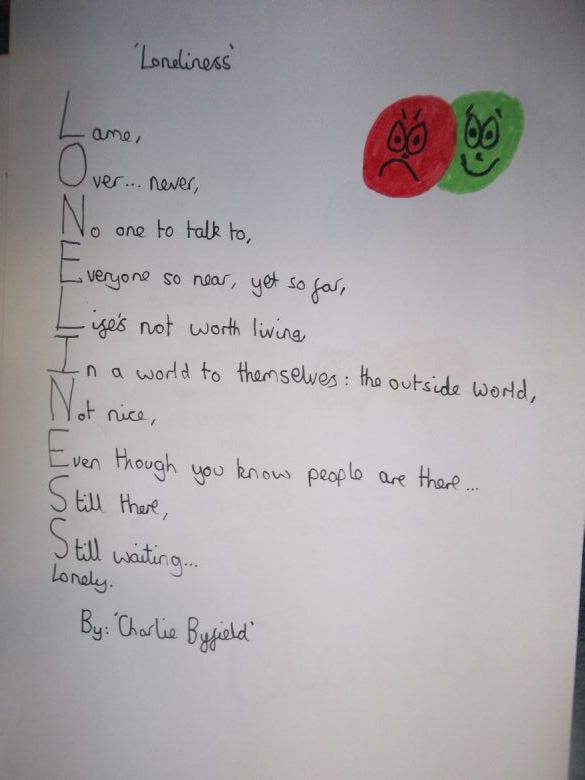 'Loneliness'
Lame,
Over... never,
No one to talk to,
Everyone so near, yet so far,
Life's not worth living
In a world to themselves: the outside world,
Not nice,
Even though you know people are there...
Still there,
Still waiting...
Lonely.
By: 'Charlie Byfield'